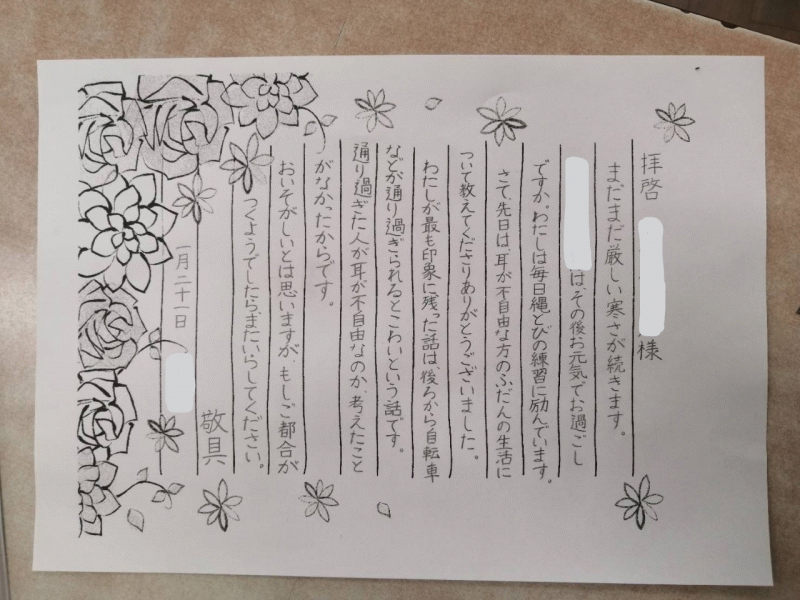 拝啓 様
まだまだ厳しい寒さが続きます。
は、その後お元気でお過ごし
ですか。わたしは毎日縄とびの練習に励んでいます。
さて、先日は、耳が不自由な方のふだんの生活に
ついて教えてくださりありがとうございました。
わたしが最も印象に残った話は、後ろから自転車
などが通り過ぎられるとこわいという話です。
通り過ぎた人が耳が不自由なのか、考えたこと
がなかったからです。
おいそがしいとは思いますが、もしご都合が
つくようでしたらまたいらしてください。
敬具
一月二十一日